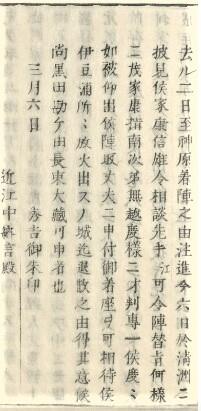 去ル二日至神原着陣之由注進今六日於清洲ニ
披見侯家康信雄令相談先手江可令陣替者何樣
ニ茂家康指南次第無越度樣ニ才判專一侯度ミ
如被仰出侯陣取丈夫ニ申付御着座ヲ可相待侯
伊豆浦所ミ放火出スノ城迄退散之由得其意候
尚黒田勘ケ由長束大藏可申者也
三月六日
秀吉御朱印
近江中納言殿